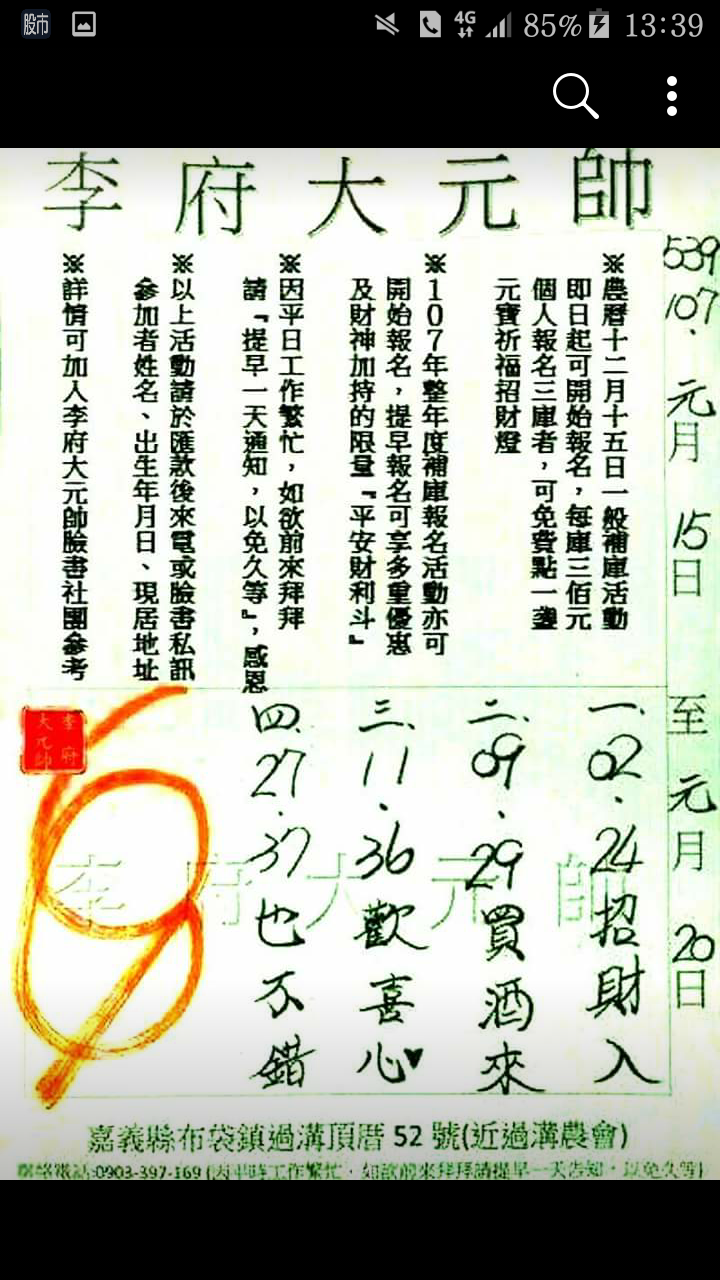 股市
4G 85% 13:39
李府大元帥
539
107.元月15日至元月20日
※農曆十二月十五日一般補庫活動
即日起可開始報名，每庫三佰元
個人報名三庫者，可免費點一盞
元寶祈福招財燈
※107年整年度補庫報名活動亦可
開始報名，提早報名可享多重優惠
及財神加持的限量『平安財利斗』
※因平日工作繁忙，如欲前來拜拜
請『提早一天通知，以免久等』，感恩
※以上活動請於匯款後來電或臉書私訊
參加者姓名、出生年月日、現居地址
※詳情可加入李府大元帥臉書社團參考
一、02.24招財入
二、09.29買酒來
三、11.36歡喜心♥
四、27.37也不錯
李府大元帥
李府大元帥
嘉義縣布袋鎮過溝頂厝52號(近過溝農會)
聯絡電話:0903-397-169(因平時工作繁忙，如欲前來拜拜請提早一天告知，以免久等)